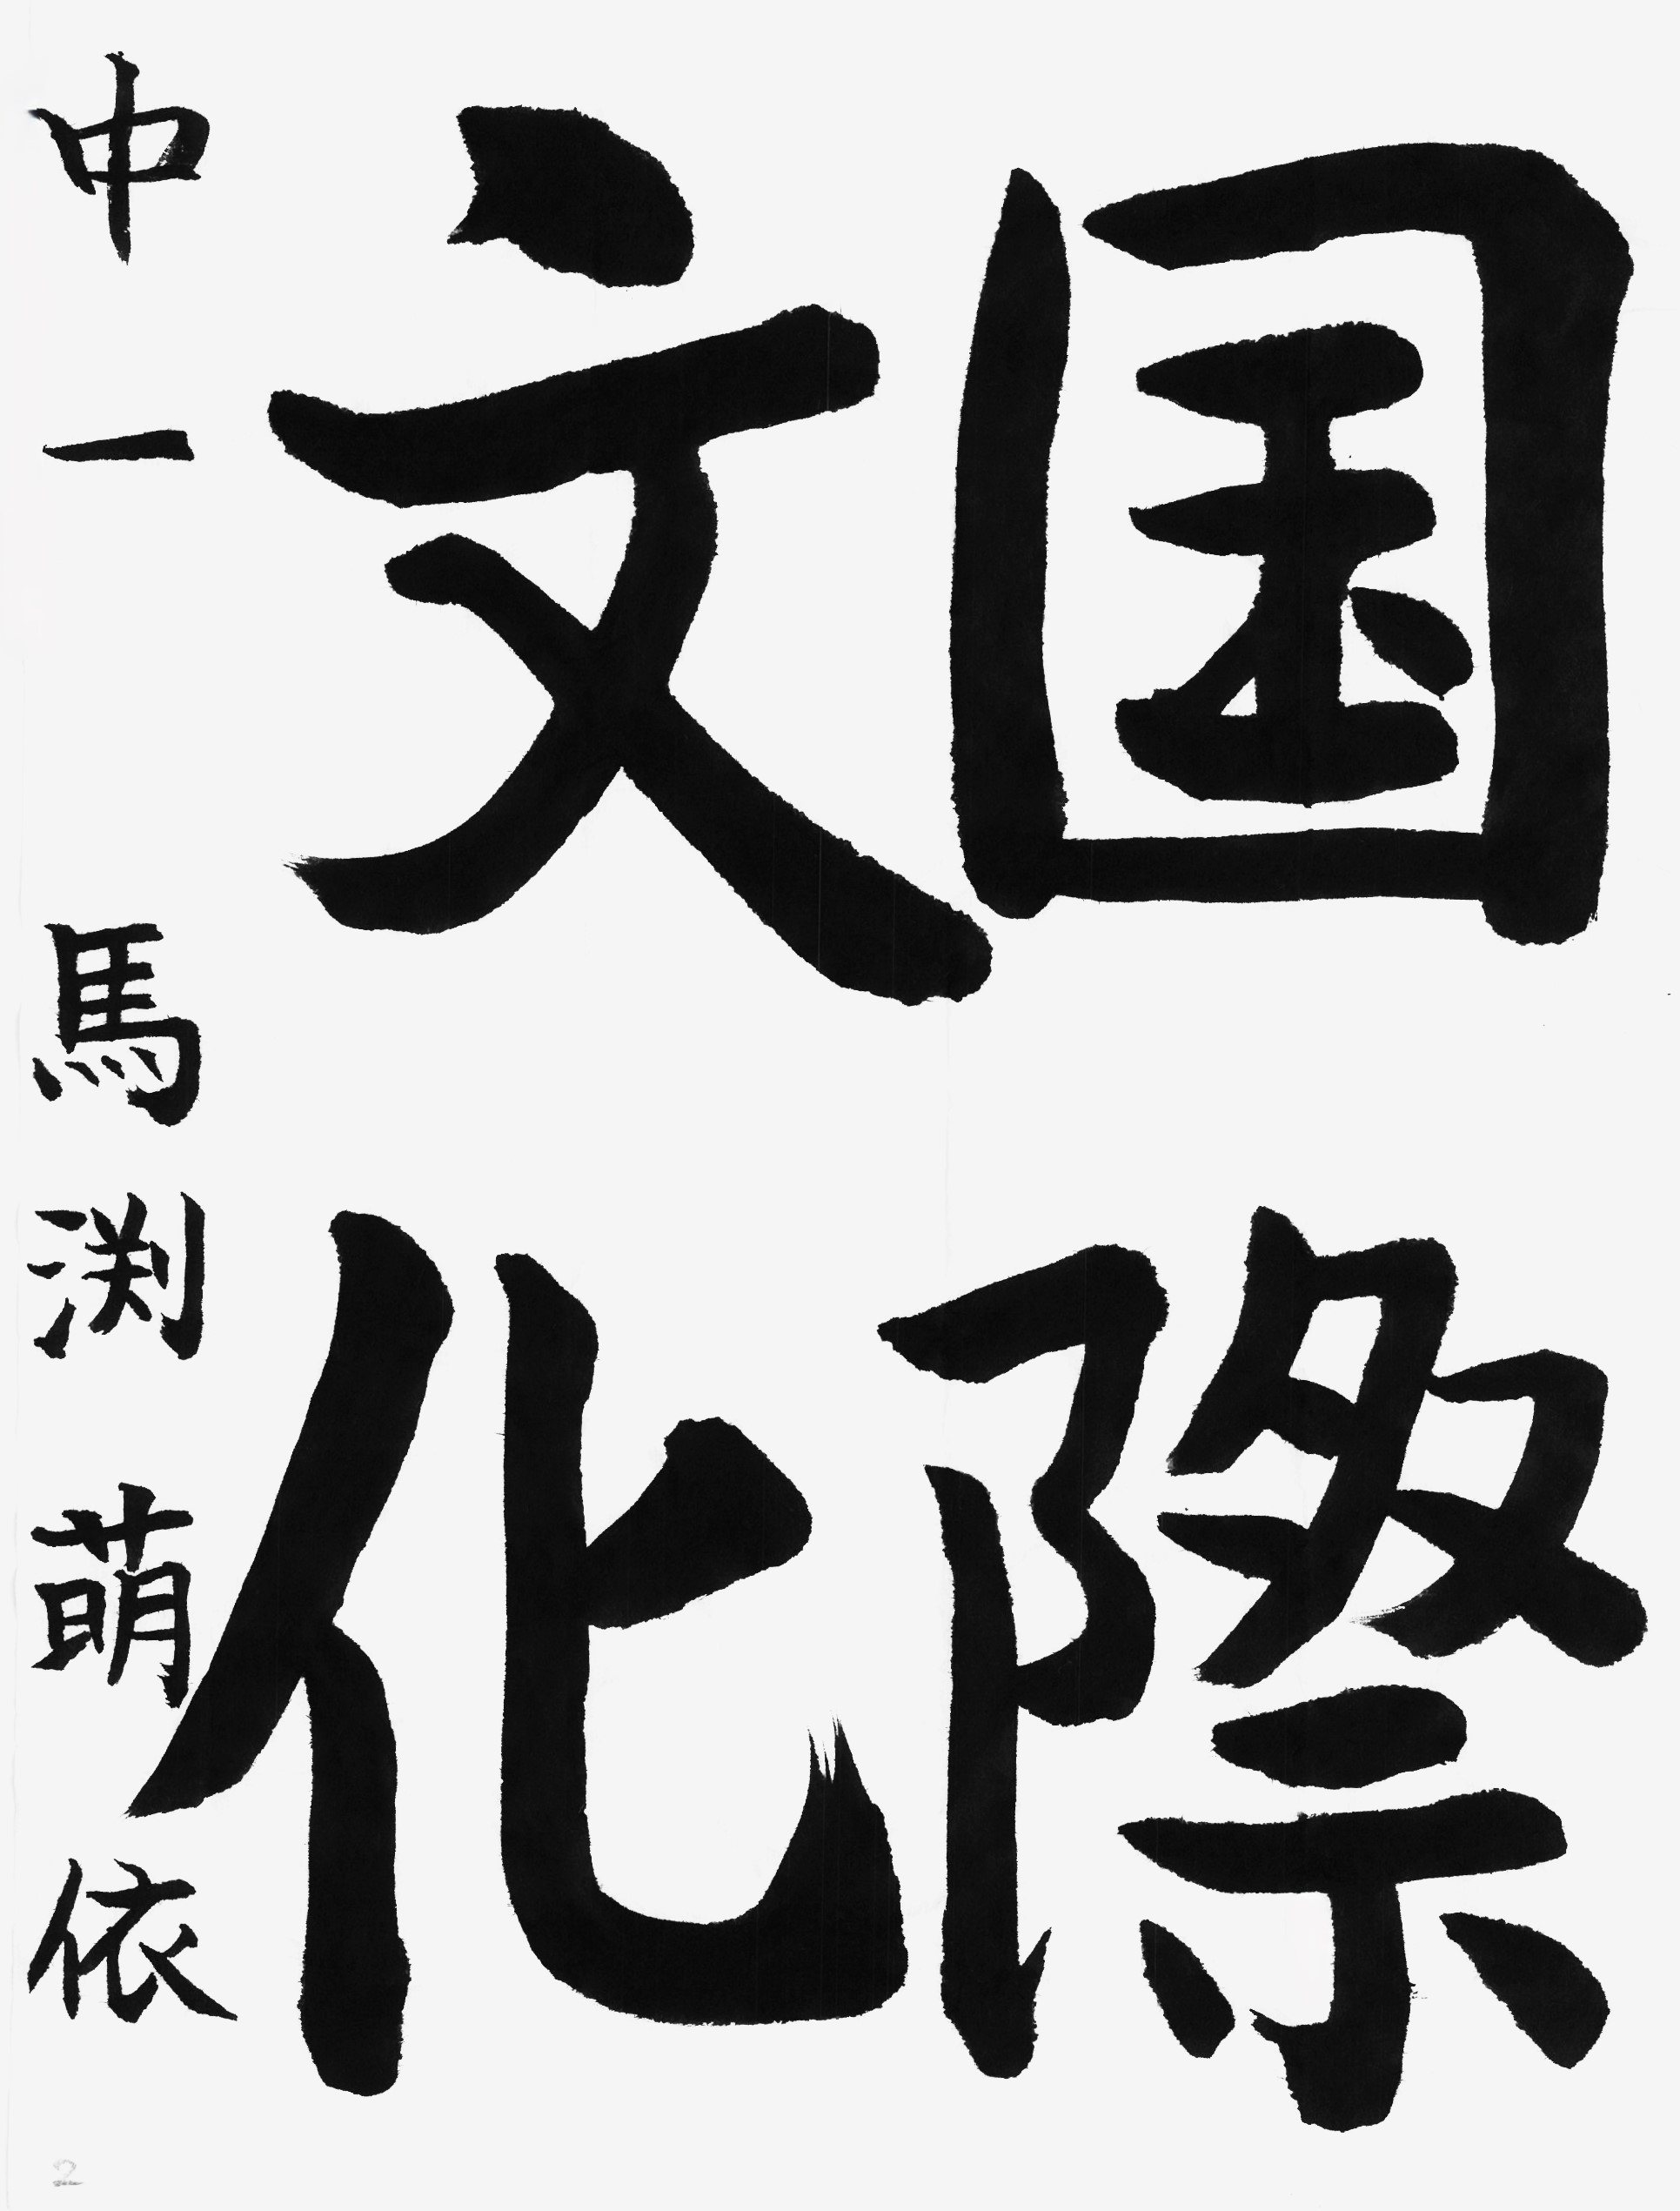 国際
文化
中一 馬渕 萌依
2